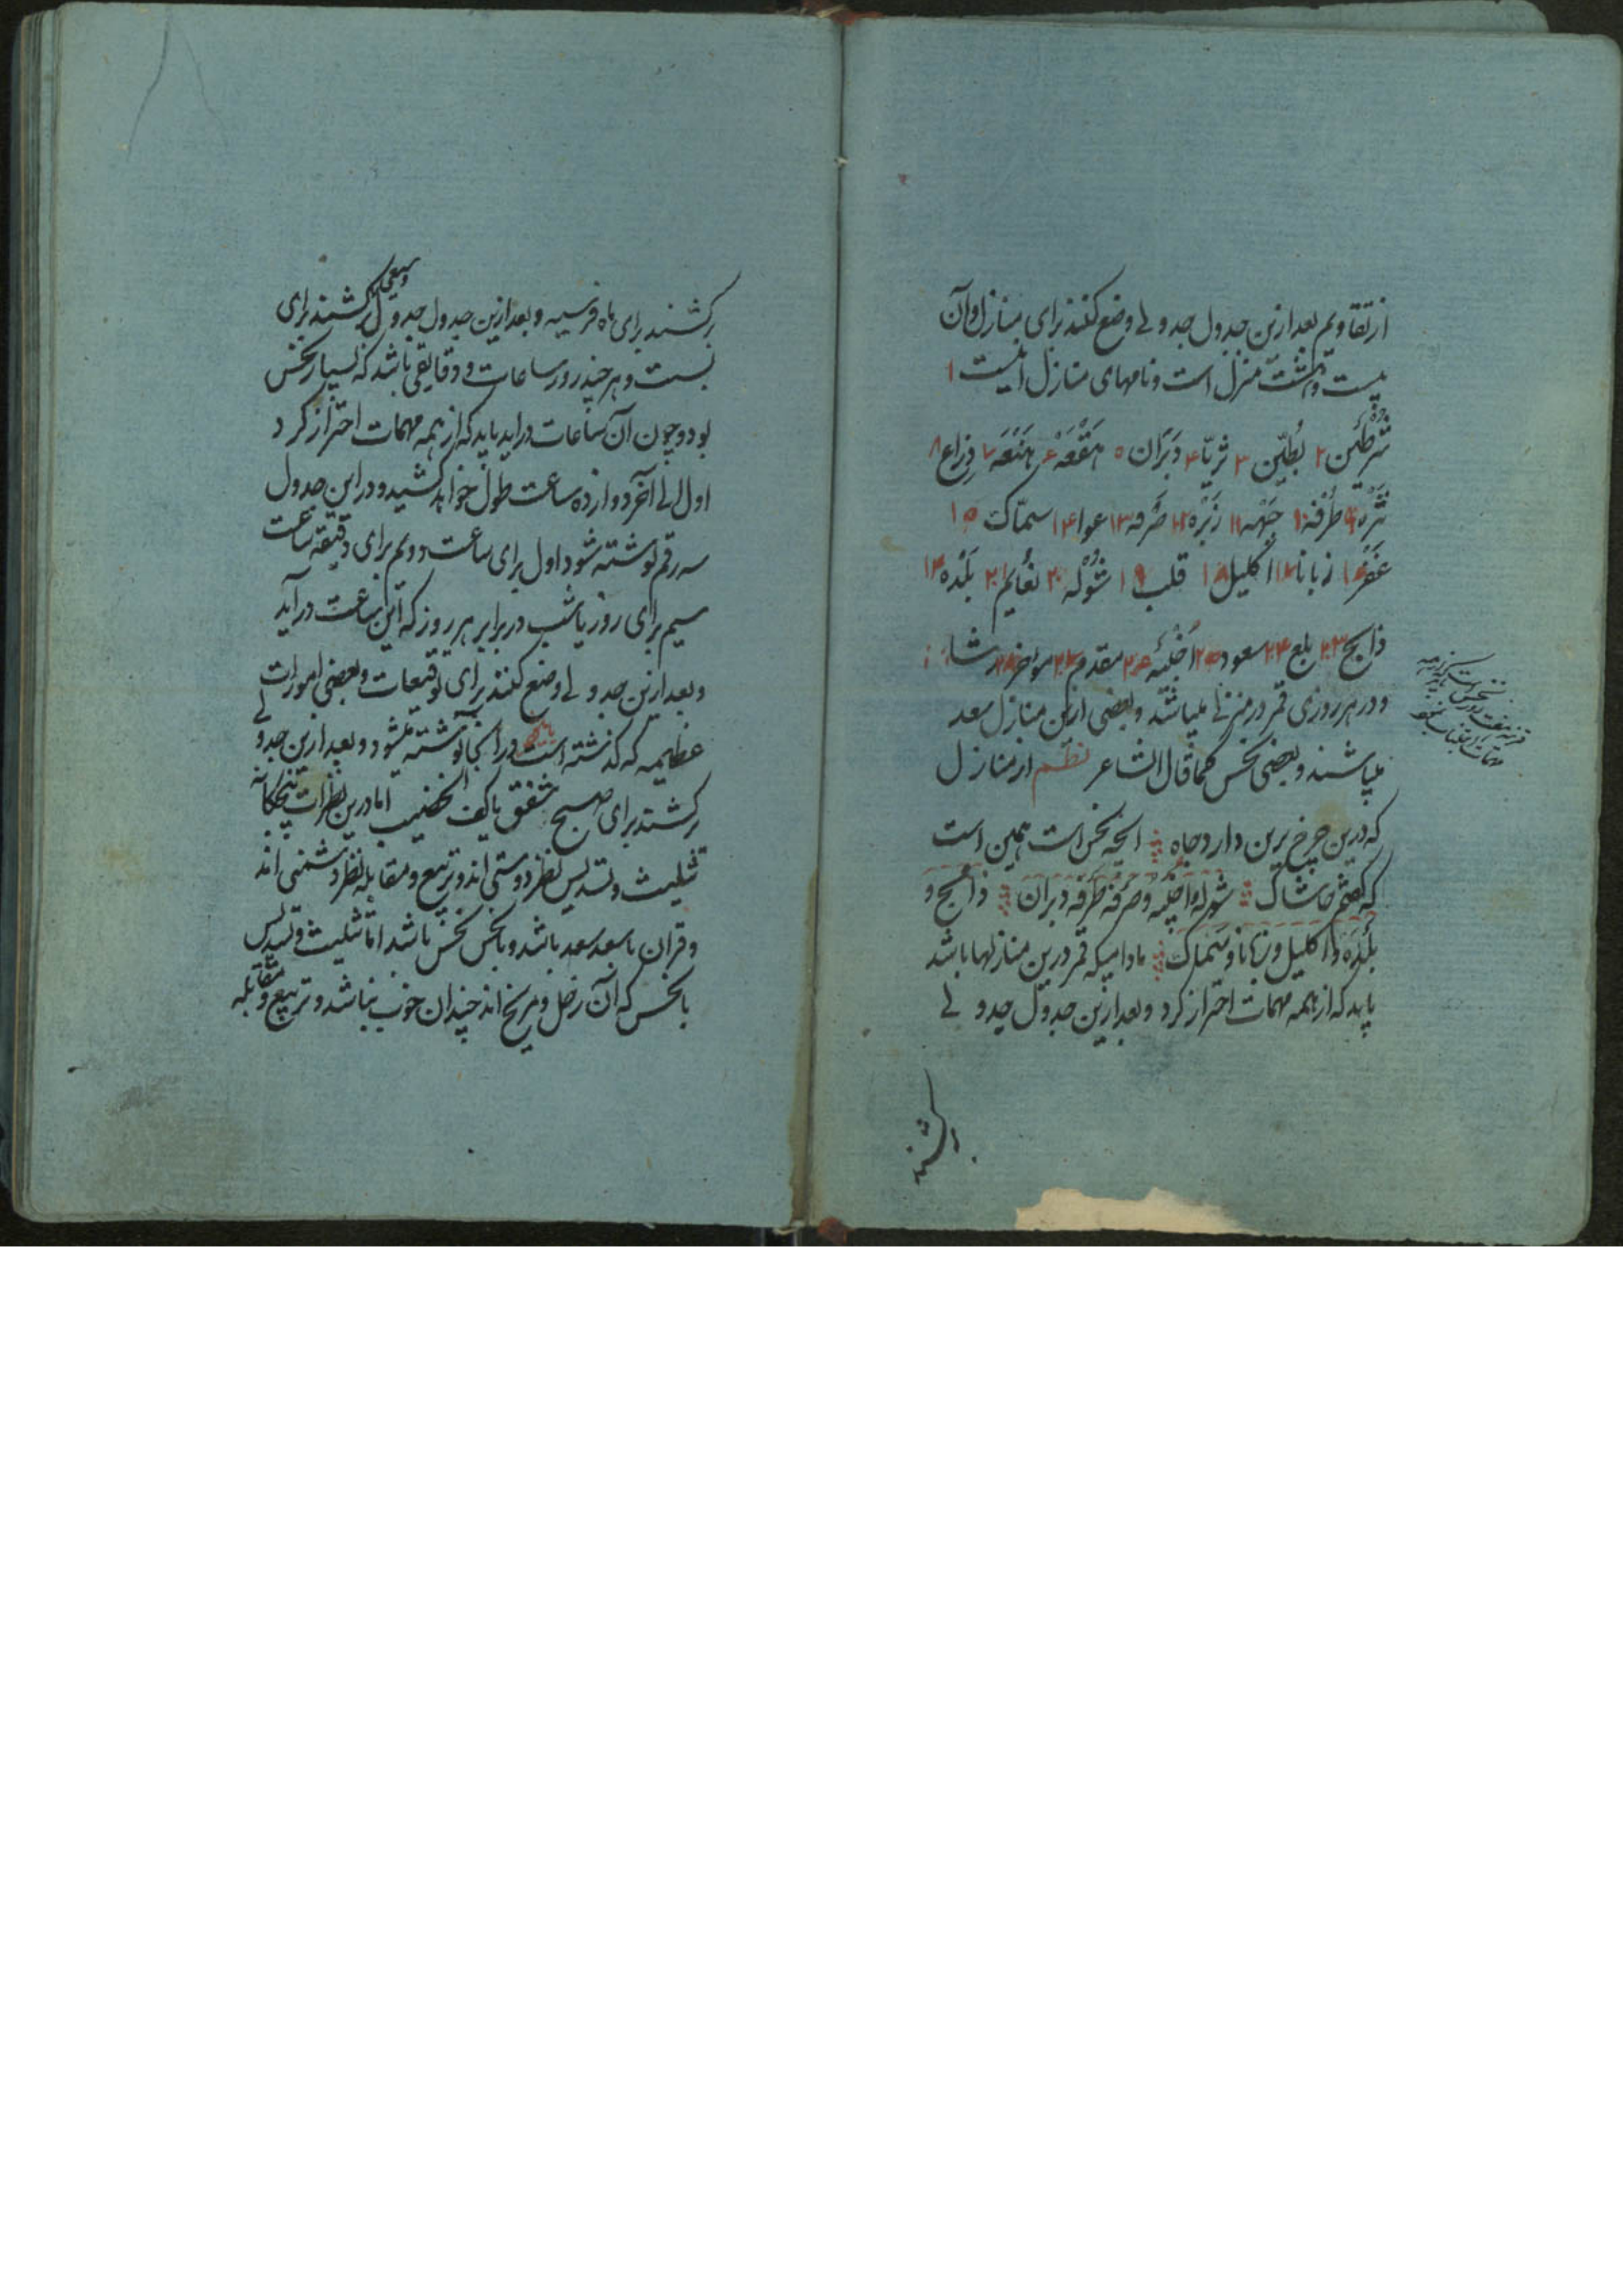 از تقاویم بعد ازین جدول جدولے وضع کنند برای منازل وآن
بیست وهشت منزل است و نامهای منازل اینست ۱
شرطین ۲ بُطَین ۳ ثریّا ۴ دَبَران ۵ هَقْعَه ۶ هَنْعَه ۷ ذِراع ۸
نَثْرَه ۹ طُرفه ۱۰ جَبْهه ۱۱ زَبْره ۱۲ صَرفه ۱۳ عوا ۱۴ سماک ۱۵
غَفْر ۱۶ زبانا ۱۷ اکلیل ۱۸ قلب ۱۹ شَوْله ۲۰ نعایم ۲۱ بَلْده ۲۲
ذابح ۲۳ بلع ۲۴ سعود ۲۵ اَخْبِیَه ۲۶ مقدم ۲۷ موخر ۲۸ رشا
ودر هر روزی قمر در منزلے میباشد وبعضی ازین منازل سعد
میباشند وبعضی نحس کما قال الشاعر نظم از منازل
که درین چرخ برین دارد جاه انچه نحس است همین است
که خاشاک شوله واخبیه وصرفه طرفه دبران ذابح و
بَلْدَه و اکلیل و زبانا و سماک مادامیکه قمر درین منازلها باشد
باید که از همه مهمات احتراز کرد وبعد ازین جدول جدولے
برکشند
برکشند برای ماه فرسیه وبعد ازین جدول جدول وسیعی برکشند برای
بست وهر چند روز ساعات ودقایقی باشد که بسیار نحس
بود وچون آن ساعات دراید باید که از همه مهمات احتراز کرد
اول الی آخر دوازده ساعت طول خواهد کشید ودر این جدول
سه رقم نوشته شود اول برای ساعت دویم برای دقیقه ساعت
سیم برای روز یا شب در برابر هر روز که این ساعت در آید
وبعد ازین جدولے وضع کنند برای توقیعات وبعضی امورات
عظیمه که گذشته است در آنجا نوشته میشود وبعد ازین جدولے
برکشند برای صبح شفق یا کف الخضیب اما درین نظرات پنجگانه
تثلیث وتسدیس نظر دوستی اند وتربیع ومقابله نظر دشمنی اند
وقران با سعد سعد باشد وبا نحس نحس باشد اما تثلیث وتسدیس
با نحس که آن زحل ومریخ اند چندان خوب نباشد وتربیع ومقابله